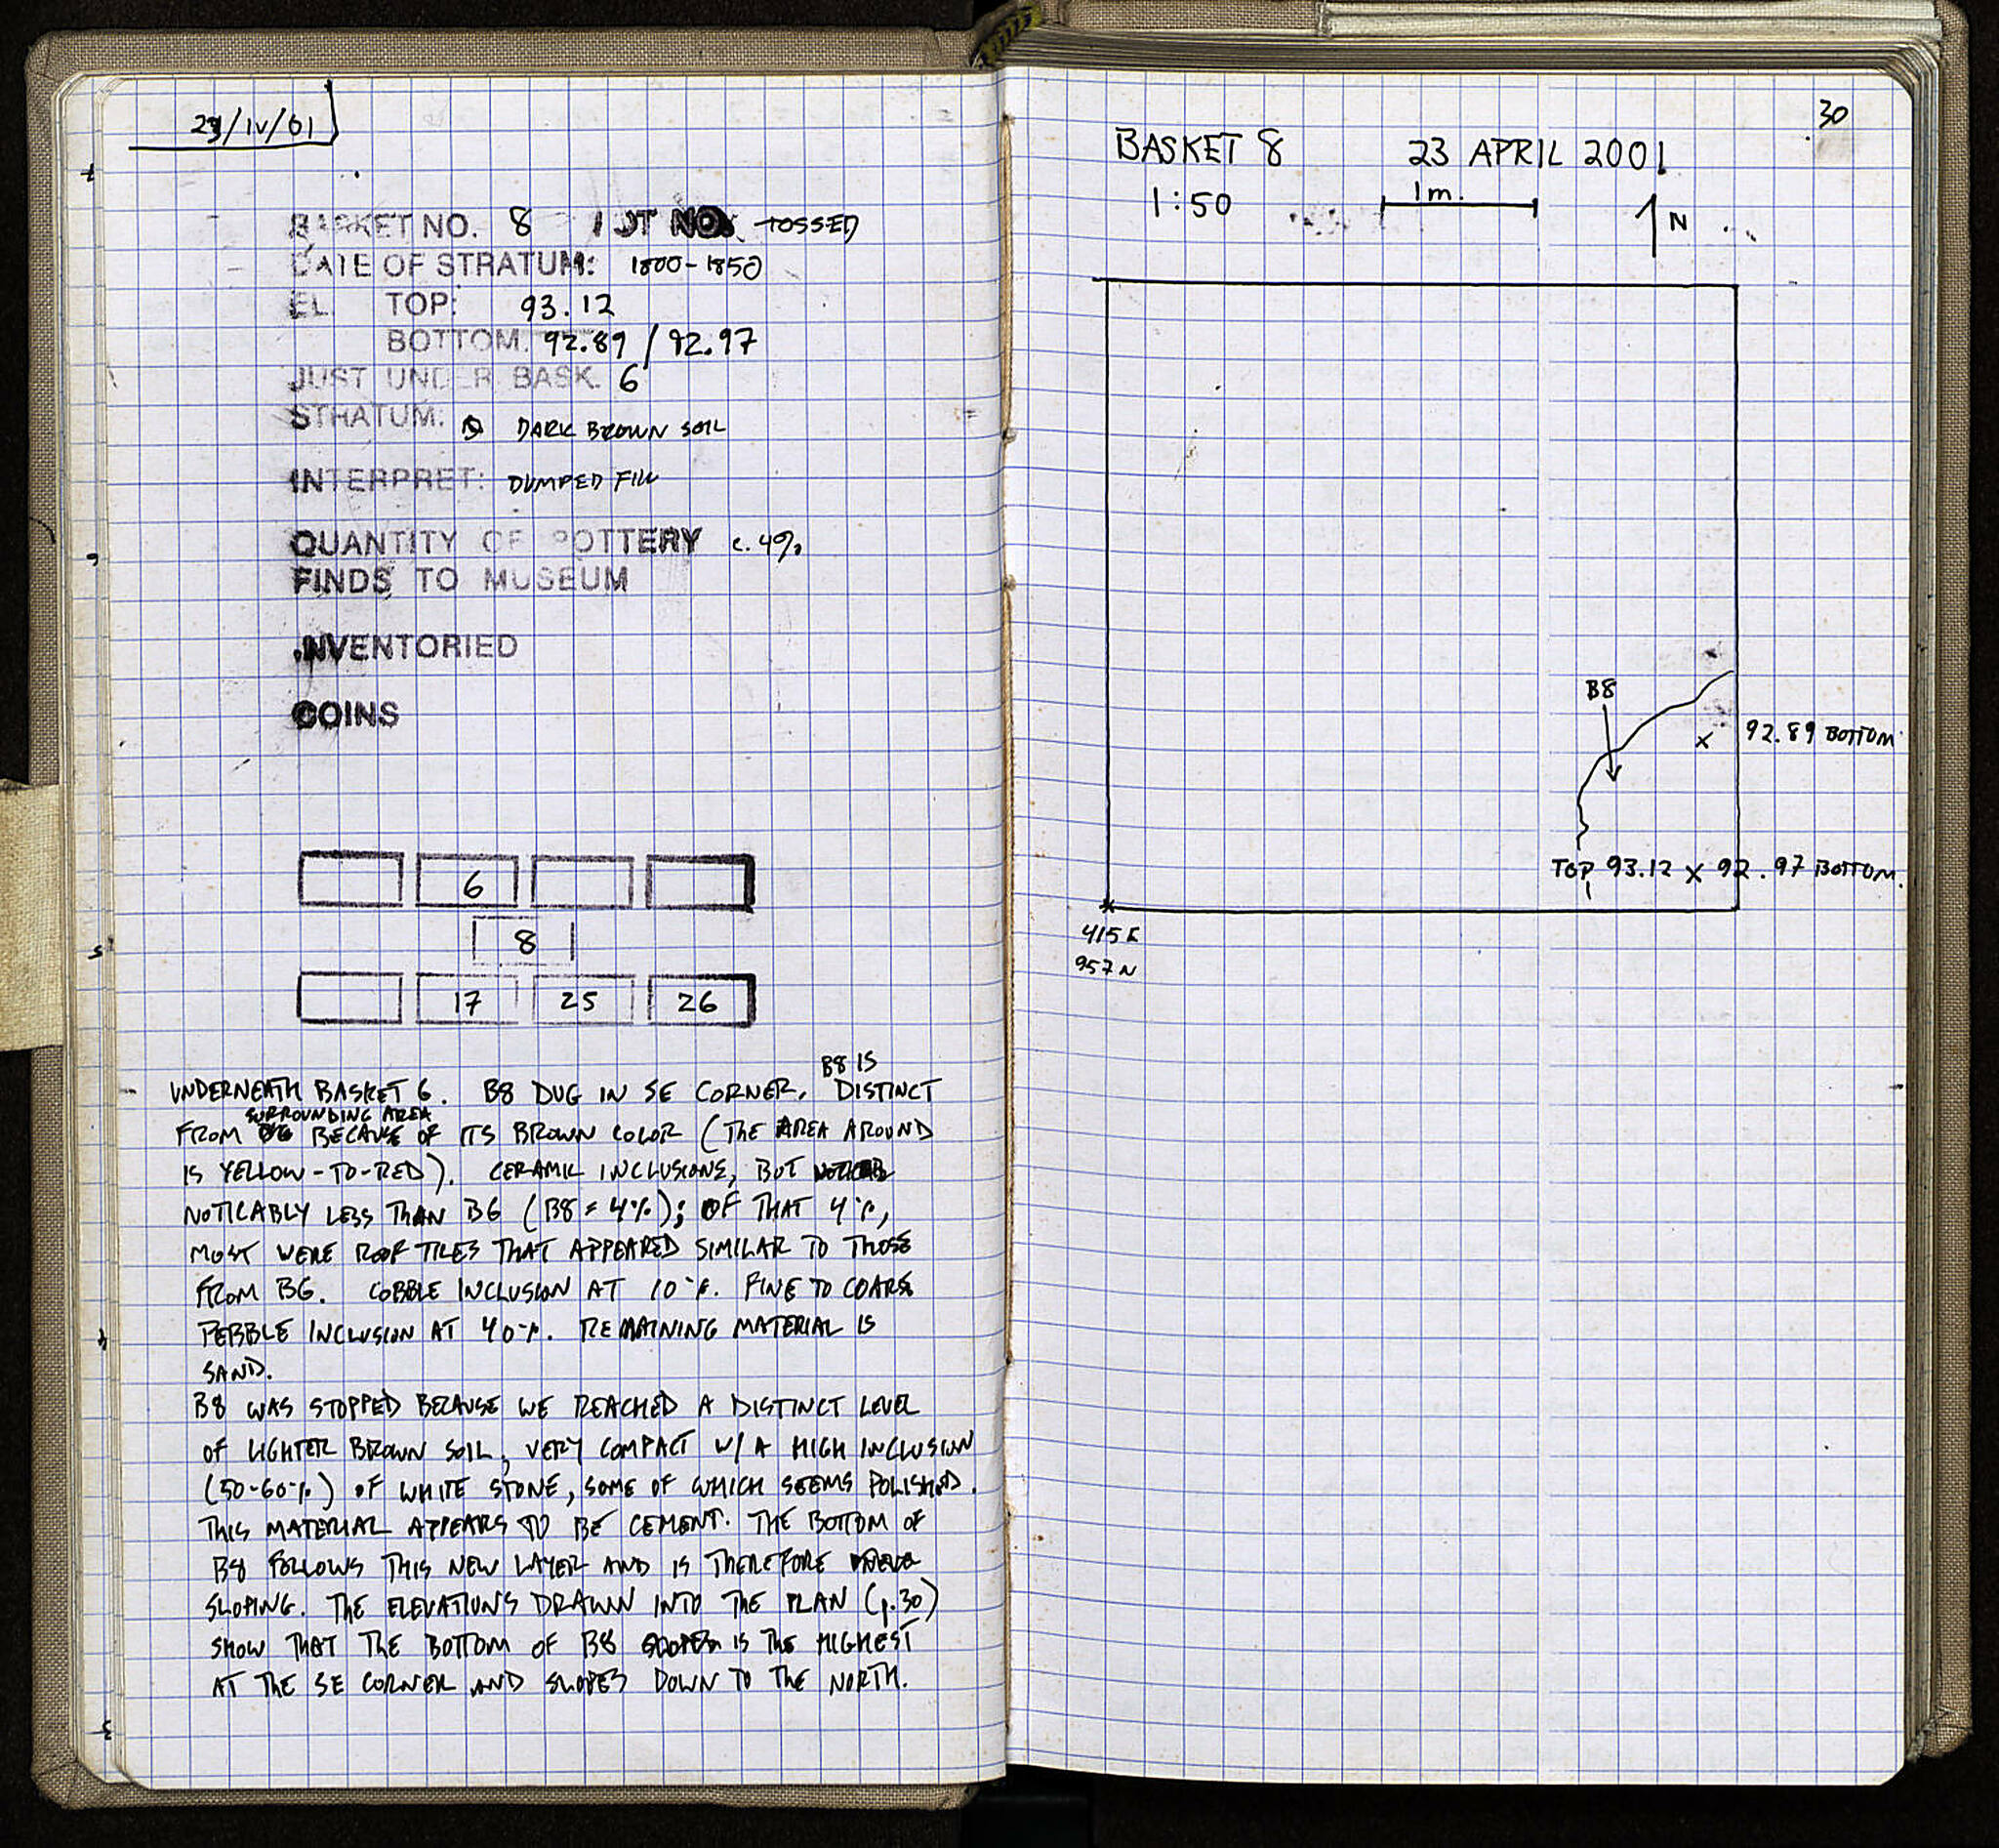 23/IV/01
BASKET NO. 8 LOT NO. TOSSED
DATE OF STRATUM: 1800-1850
EL. TOP: 93.12
BOTTOM: 92.89 / 92.97
JUST UNDER BASK. 6
STRATUM: DARK BROWN SOIL
INTERPRET: DUMPED FILL
QUANTITY OF POTTERY c. 4%
FINDS TO MUSEUM
INVENTORIED
COINS
6
8
17 25 26
B8 IS
UNDERNEATH BASKET 6. B8 DUG IN SE CORNER. DISTINCT
SURROUNDING AREA
FROM BECAUSE OF ITS BROWN COLOR (THE AREA AROUND
IS YELLOW-TO-RED). CERAMIC INCLUSIONS, BUT
NOTICABLY LESS THAN B6 (B8 = 4%); OF THAT 4%,
MOST WERE ROOF TILES THAT APPEARED SIMILAR TO THOSE
FROM B6. COBBLE INCLUSION AT 10%. FINE TO COARSE
PEBBLE INCLUSION AT 40%. REMAINING MATERIAL IS
SAND.
B8 WAS STOPPED BECAUSE WE REACHED A DISTINCT LEVEL
OF LIGHTER BROWN SOIL, VERY COMPACT W/ A HIGH INCLUSION
(50-60%) OF WHITE STONE, SOME OF WHICH SEEMS POLISHED.
THIS MATERIAL APPEARS TO BE CEMENT. THE BOTTOM OF
B8 FOLLOWS THIS NEW LAYER AND IS THEREFORE
SLOPING. THE ELEVATIONS DRAWN INTO THE PLAN (p.30)
SHOW THAT THE BOTTOM OF B8 IS THE HIGHEST
AT THE SE CORNER AND SLOPES DOWN TO THE NORTH.
30
BASKET 8 23 APRIL 2001
1:50 1m. N
B8
x 92.89 BOTTOM
TOP 93.12 x 92.97 BOTTOM.
415 E
957 N